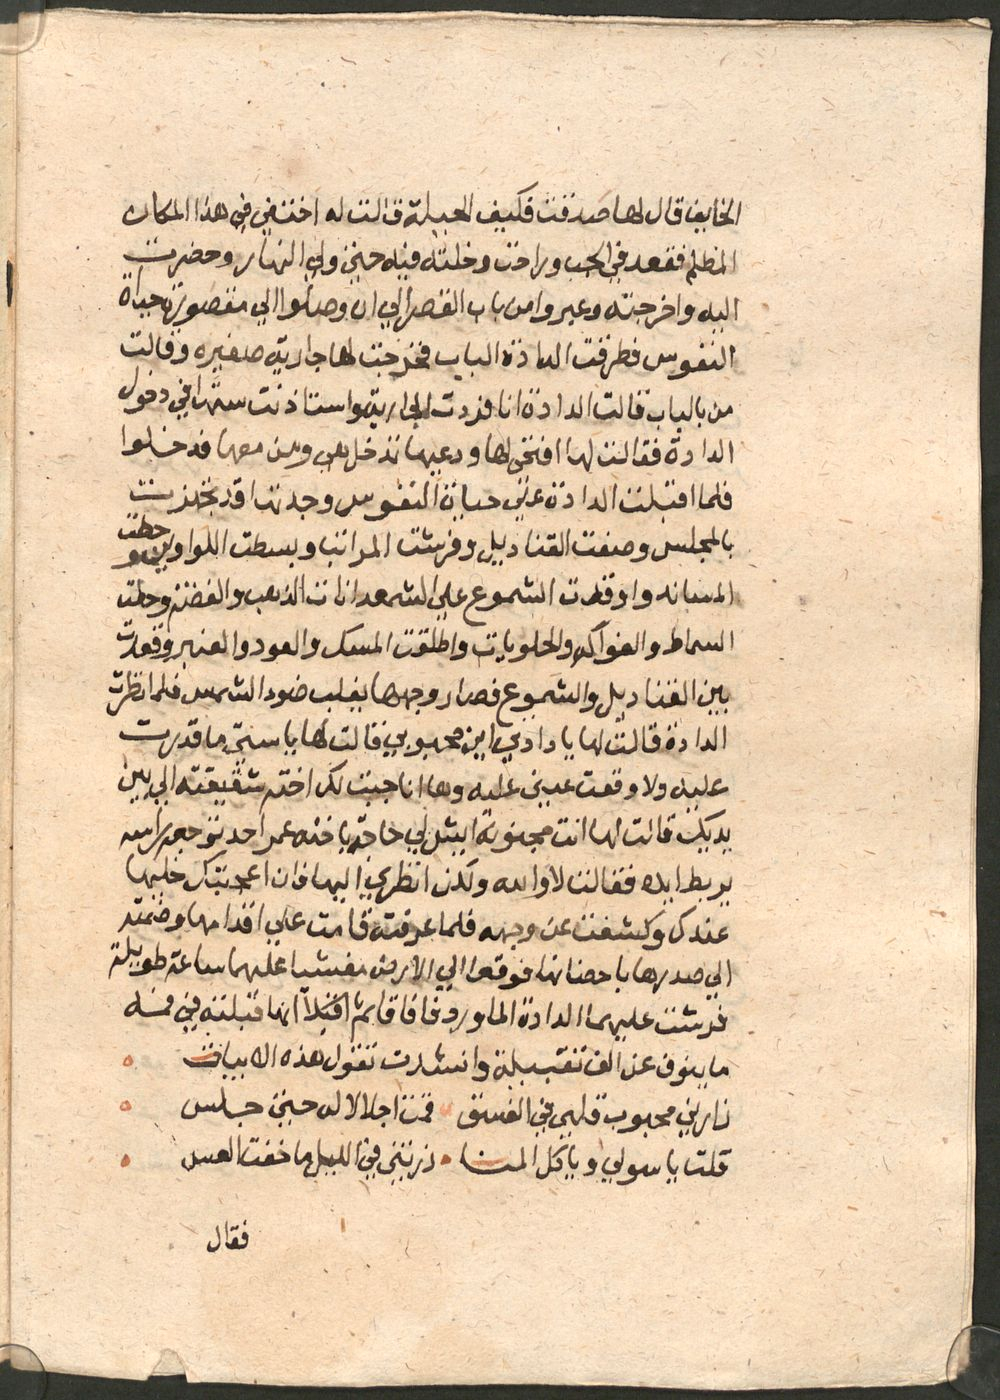 الخايف قال لها صدقت فكيف الحيلة قالت له اختفي في هذا المكان
المظلم فقعد في الجب وراحت وخلته فيه حتي ولي النهار وحضرت
اليه واخرجته وعبروا من باب القصر الي ان وصلوا الي مقصورة حياة
النفوس فطرقت الدادة الباب فخرجت لها جارية صغيره وقالت
من بالباب قالت الدادة انا فردت الجارية واستاذنت ستها في دخول
الدادة فقالت لها افتحي لها ودعيها تدخل هي ومن معها فدخلوا
فلما اقبلت الدادة علي حياة النفوس وجدتها قد تجهزت
بالمجلس وصفت القناديل وفرشت المراتب وبسطت اللواوين وحطت
المسانه واوقدت الشموع علي الشمعدانات الذهب والفضة وحطت
السماط والفواكه والحلويات واطلقت المسك والعود والعنبر وقعدت
بين القناديل والشموع فصار وجهها يغلب ضوء الشمس فلما نظرت
الدادة قالت لها يا دادتي اين محبوبي قالت لها يا ستي ما قدرت
عليه ولا وقعت عيني عليه وها انا جبت لك اخته شقيقته الي بين
يديك قالت لها انت مجنونة ايش لي حاجة باخته عمر احد توجعه راسه
يربط ايده فقالت لا والله ولكن انظري اليها فان اعجبتك خليها
عندك وكشفت عن وجهه فلما عرفته قامت علي اقدامها وضمته
الي صدرها باحضانها فوقعوا الي الارض مغشيا عليهما ساعة طويلة
فرشت عليهما الدادة الماورد ففاقا ثم انها قبلته في فمه
ما ينوف عن الف تقبيلة وانشدت تقول هذه الابيات
زارني محبوب قلبي في الغسق قمت اجلالا له حتي جلس
قلت يا سولي ويا كل المنا زرتني في الليل ما خفت العسس
فقال